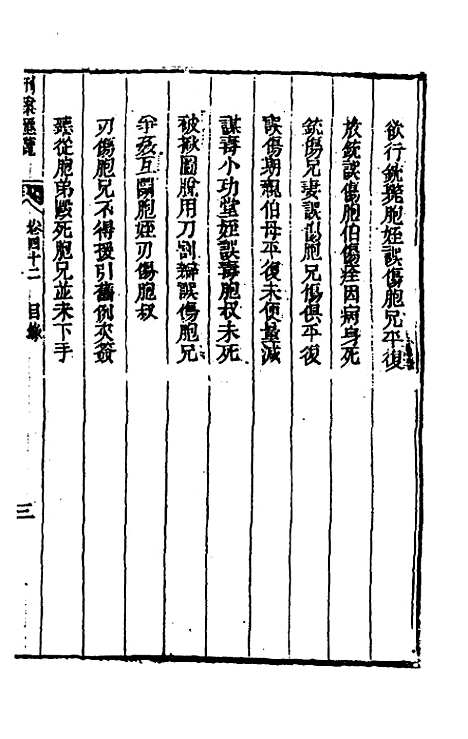 欲行銃斃胞姪誤傷胞兄平復
放銃誤傷胞伯傷痊因病身死
銃傷兄妻誤傷胞兄傷俱平復
誤傷期親伯母平復未便量減
謀毒小功堂姪誤毒胞叔未死
被揪圖脫用刀割辮誤傷胞兄
爭姦互鬬胞姪刃傷胞叔
刃傷胞兄不得援引舊例夾簽
聽從胞弟毆死胞兄並未下手
刑案匯覽 卷四十二 目錄 三